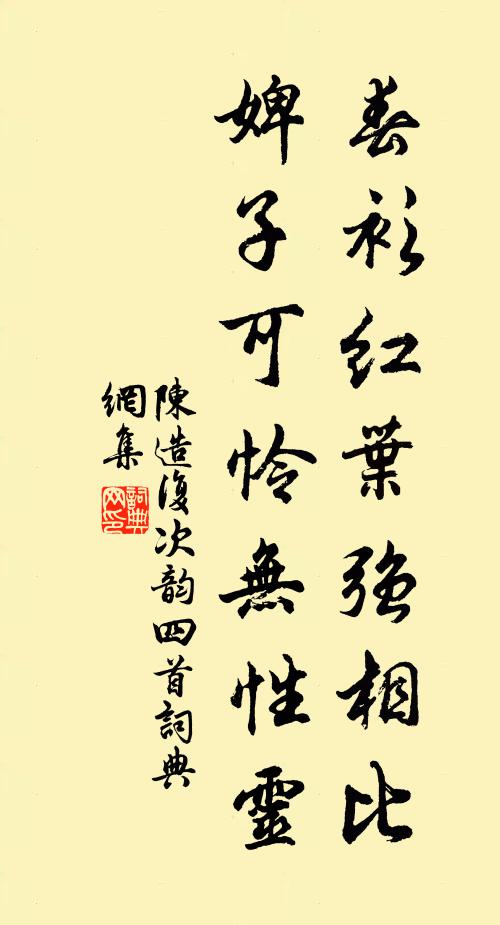 春衫红葉強相比
婢子可怜無性靈
陳造復次韵四首詞典
網集
詞典网印